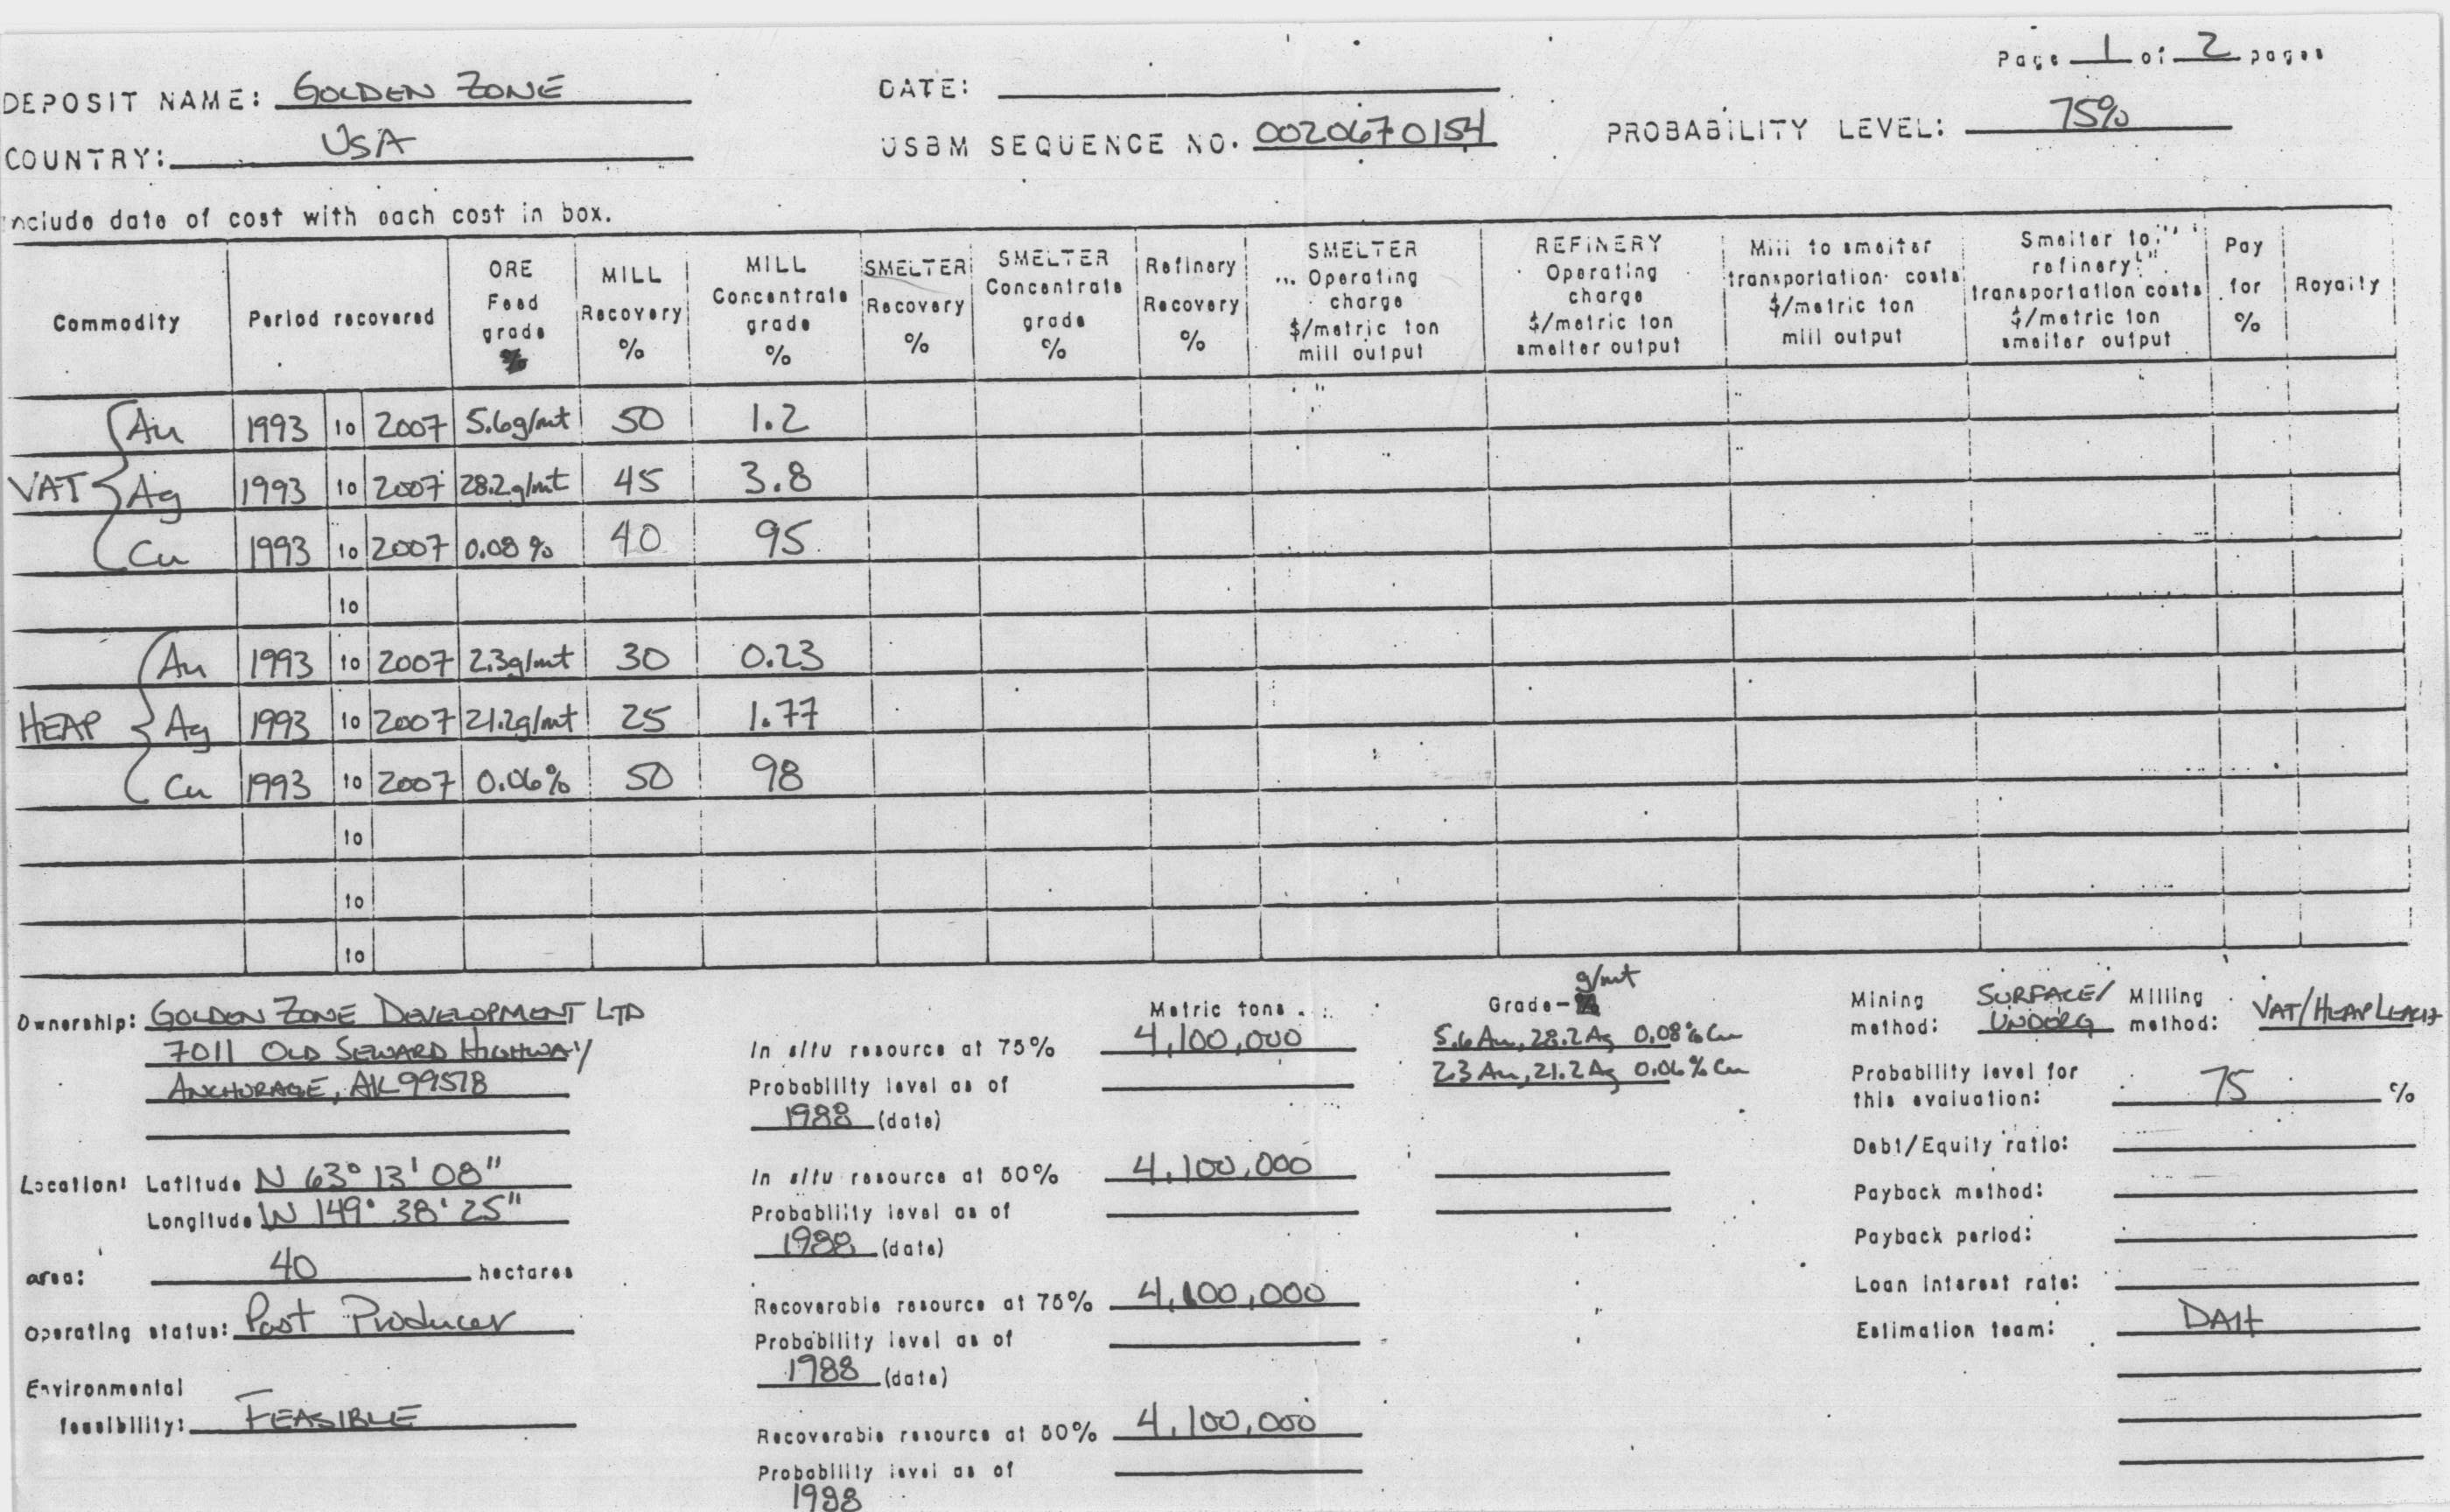 Page 1 of 2 pages
DEPOSIT NAME: GOLDEN ZONE
DATE:
COUNTRY: USA
USBM SEQUENCE NO. 0020670154
PROBABILITY LEVEL: 75%
Include date of cost with each cost in box.
Commodity
Period recovered
ORE Feed grade
MILL Recovery %
MILL Concentrate grade %
SMELTER Recovery %
SMELTER Concentrate grade %
Refinery Recovery %
SMELTER Operating charge $/metric ton mill output
REFINERY Operating charge $/metric ton smelter output
Mill to smelter transportation costs $/metric ton mill output
Smelter to refinery transportation costs $/metric ton smelter output
Pay for %
Royalty
Au 1993 to 2007 5.6g/mt 50 1.2
VAT Ag 1993 to 2007 28.2g/mt 45 3.8
Cu 1993 to 2007 0.08% 40 95
to
Au 1993 to 2007 2.3g/mt 30 0.23
HEAP Ag 1993 to 2007 21.2g/mt 25 1.77
Cu 1993 to 2007 0.06% 50 98
to
to
to
Ownership: GOLDEN ZONE DEVELOPMENT LTD
7011 OLD SEWARD HIGHWAY
ANCHORAGE, AK 99518
Location: Latitude N 63° 13' 08"
Longitude W 149° 38' 25"
area: 40 hectares
Operating status: Past Producer
Environmental
feasibility: FEASIBLE
Metric tons
g/mt
Grade-
In situ resource at 75% 4,100,000 5.6 Au, 28.2 Ag 0.08% Cu
Probability level as of 2.3 Au, 21.2 Ag 0.06% Cu
1988 (date)
In situ resource at 50% 4,100,000
Probability level as of
1988 (date)
Recoverable resource at 75% 4,100,000
Probability level as of
1988 (date)
Recoverable resource at 50% 4,100,000
Probability level as of
1988
Mining method: SURFACE/ UNDERG
Milling method: VAT/HEAP LEACH
Probability level for
this evaluation: 75 %
Debt/Equity ratio:
Payback method:
Payback period:
Loan interest rate:
Estimation team: DAH